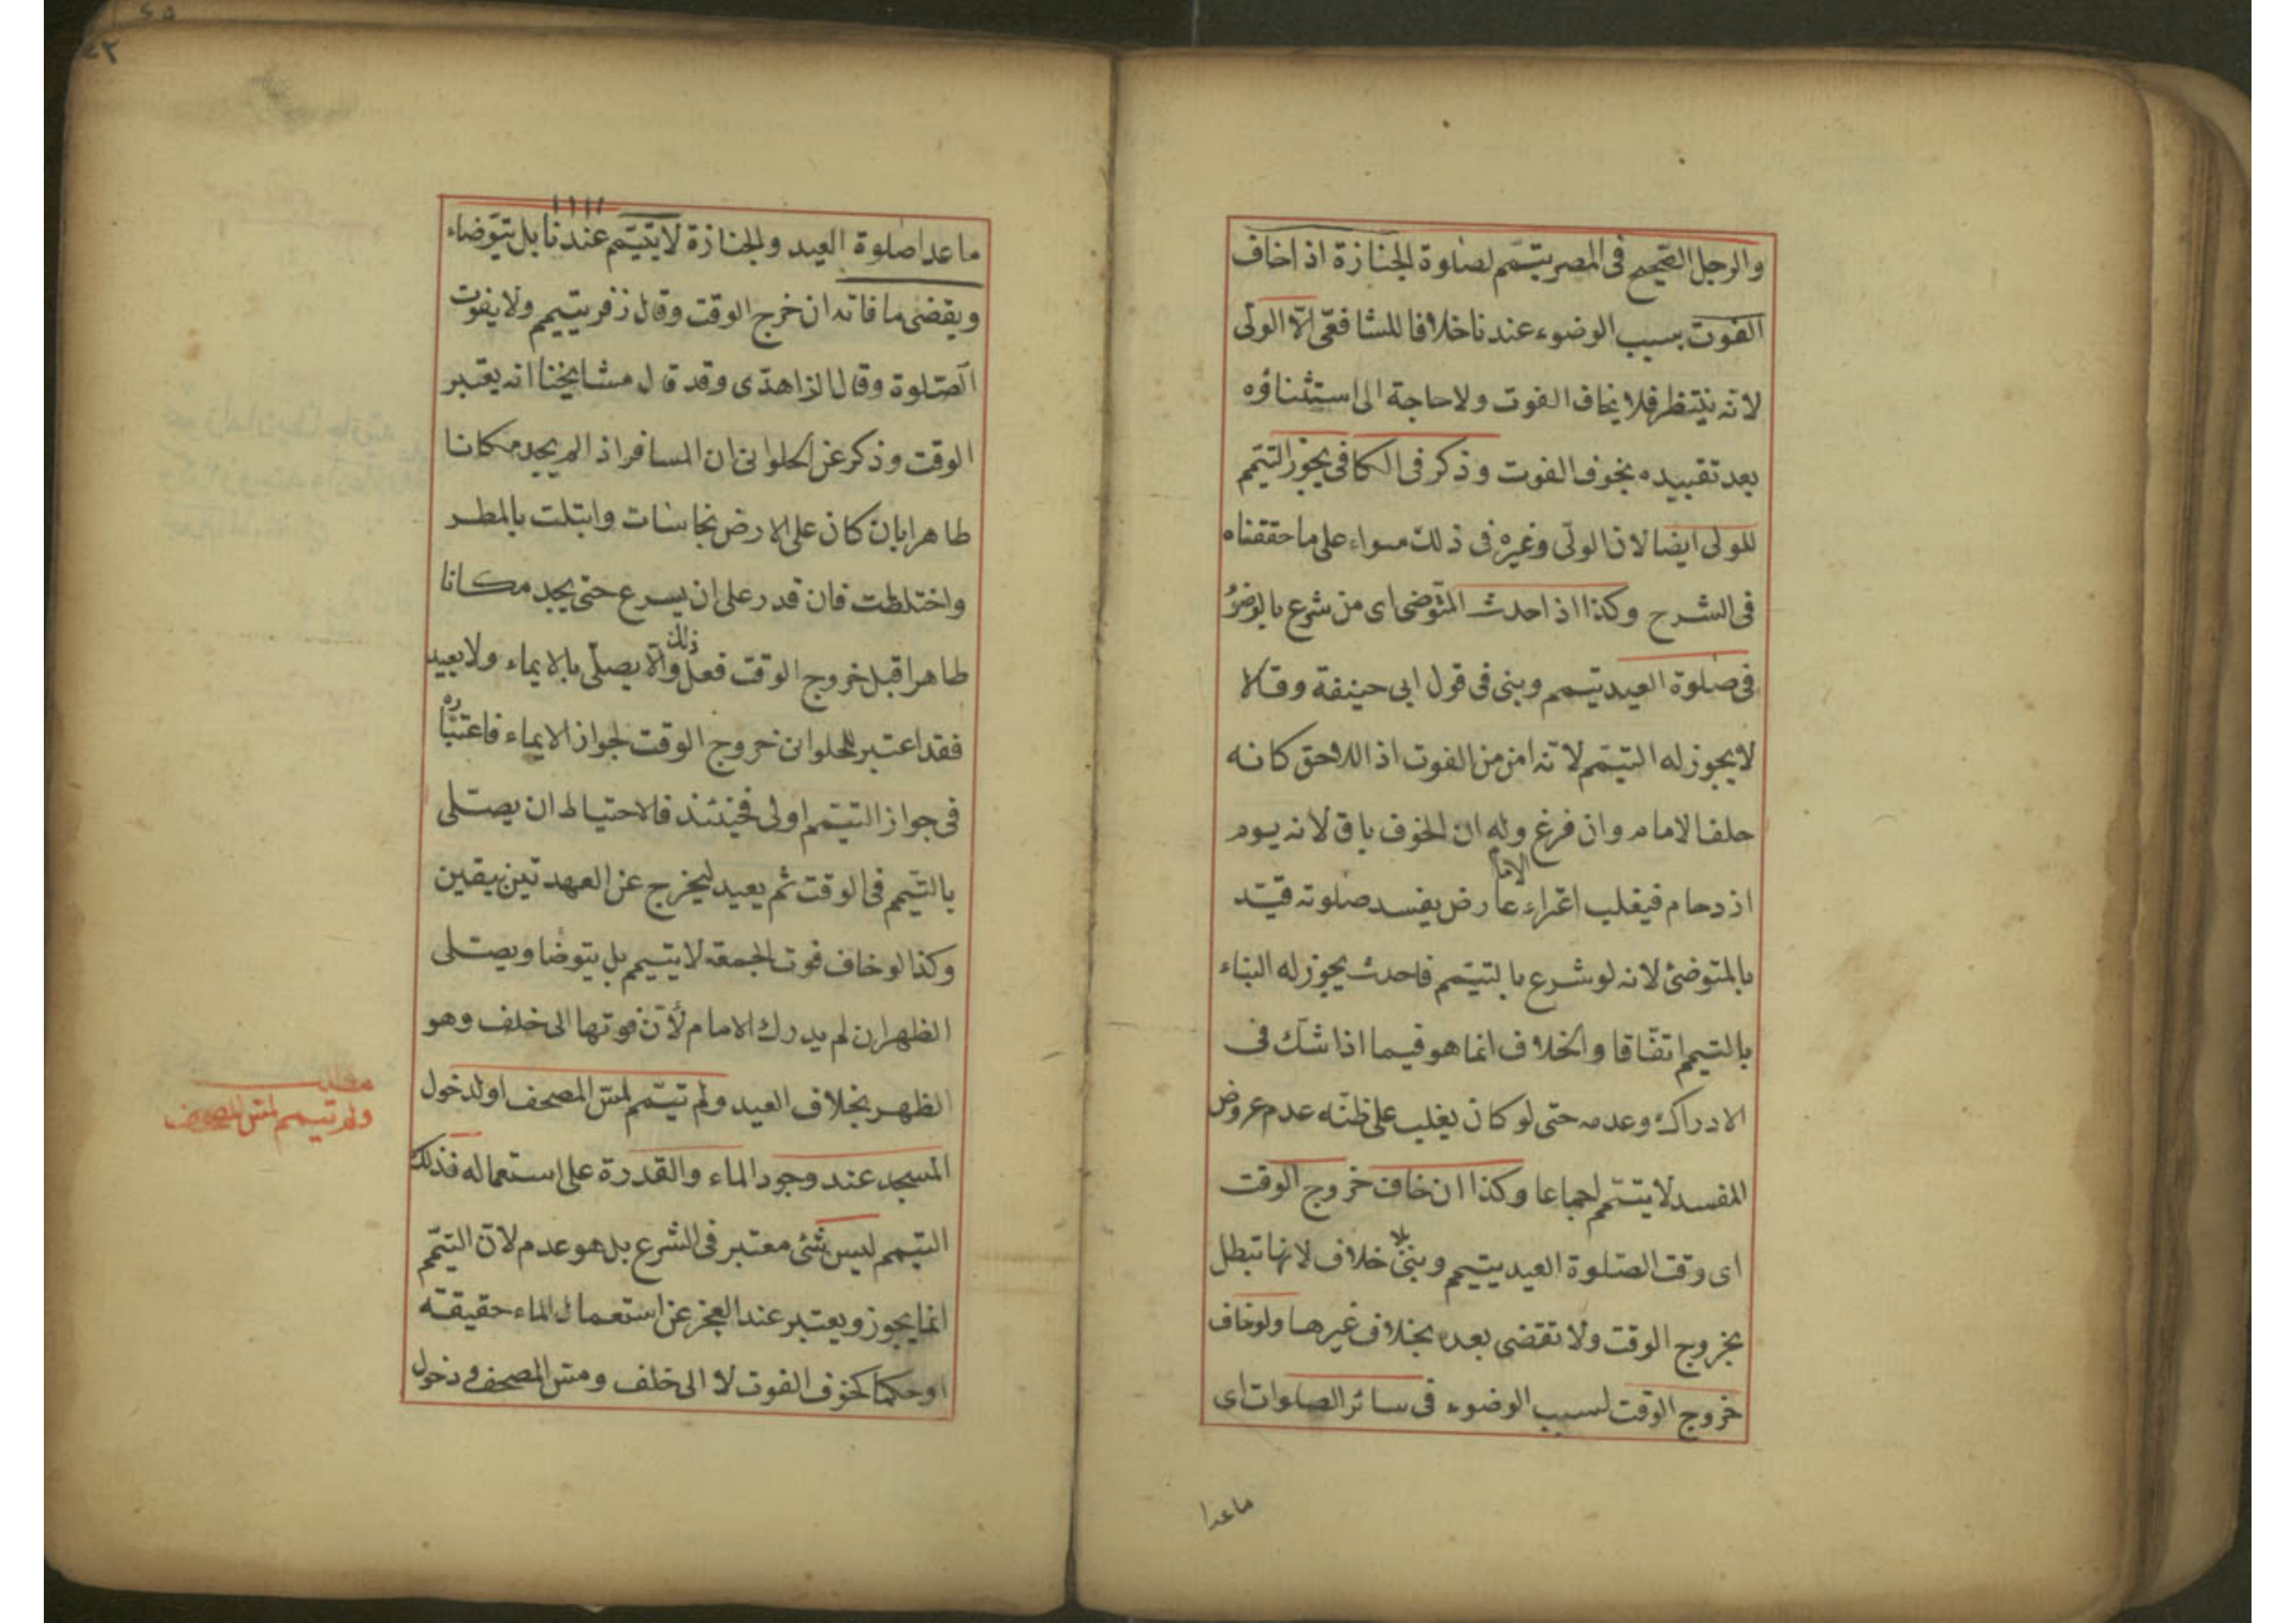 والرجل الصحيح فى المصر يتيمم لصلوة الجنازة اذا خاف
الفوت بسبب الوضوء عندنا خلافا للشافعى الّا الولى
لانه ينتظر فلا يخاف الفوت ولا حاجة الى استثناؤه
بعد تقييده بخوف الفوت وذكر فى الكافى يجوز التيمم
للولى ايضا لان الولى وغيره فى ذلك سواء على ما حققناه
فى الشرح وكذا اذا احدث المتوضى اى من شرع بالوضوء
فى صلوة العيد يتيمم ويبنى فى قول ابى حنيفة وقالا
لا يجوز له التيمم لانه امن من الفوت اذ اللاحق كانه
خلف الامام وان فرغ وله ان الخوف باق لانه يوم
ازدحام فيغلب اعتراء عارض يفسد صلوته قيّد
الامام
بالمتوضئ لانه لو شرع بالتيمم فاحدث يجوز له البناء
بالتيمم اتفاقا والخلاف انما هو فيما اذا شك فى
الادراك وعدمه حتى لو كان يغلب على ظنّه عدم عروض
المفسد لا يتيمم اجماعا وكذا ان خاف خروج الوقت
اى وقت الصلوة العيد يتيمم ويبنى بلا خلاف لانها تبطل
بخروج الوقت ولا تقضى بعده بخلاف غيرها ولو خاف
خروج الوقت لسبب الوضوء فى سائر الصلوات اى
ما عدا
٤٢
ما عدا صلوة العيد والجنازة لا يتيمم عندنا بل يتوضاء
ويقضى ما فاته ان خرج الوقت وقال زفر يتيمم ولا يفوت
الصّلوة وقال الزاهدى وقد قال مشايخنا انه يعتبر
الوقت وذكر عن الحلوانى ان المسافر اذا لم يجد مكانا
طاهرا بان كان على الارض نجاسات وابتلت بالمطر
واختلطت فان قدر على ان يسرع حتى يجد مكانا
طاهرا قبل خروج الوقت فعل ذلك والّا يصلّى بالايماء ولا يعيد
فقد اعتبر الحلوانى خروج الوقت لجواز الايماء فاعتباره
فى جواز التيمم اولى فحينئذ فالاحتياط ان يصلى
بالتيمم فى الوقت ثم يعيد ليخرج عن العهدتين بيقين
وكذا لو خاف فوت الجمعة لا يتيمم بل يتوضا ويصلى
الظهر ان لم يدرك الامام لأن فوتها الى خلف وهو
الظهر بخلاف العيد ولم تيمّم لمسّ المصحف او لدخول
المسجد عند وجود الماء والقدرة على استعماله فذلك
التيمم ليس بشئ معتبر فى الشرع بل هو عدم لانّ التيمّم
انما يجوز ويعتبر عند العجز عن استعمال الماء حقيقة
او حكما كخوف الفوت لا الى خلف ومسّ المصحف ودخول
مطلب
ولو تيمم لمس المصحف